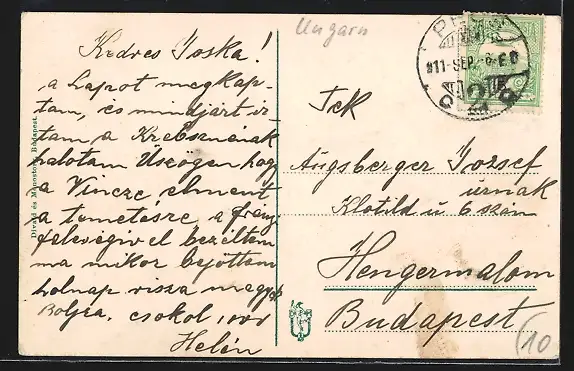 Ungarn
Kedves Joska!
a Lapot megkap-
tam, és mindjárt ir-
tam a Krebsznének
halotam Üszögen hogy
a Vincze elment
a temetésre a
feleségivel beszéltem
ma mikor bejöttem
holnap visza megyek
csokol
Helén
Divald és Monostory, Budapest.
911-SEP
Tek
Augsberger Jozsef
urnak
Klotild u 6 szám
Hengermalom
Budapest
10